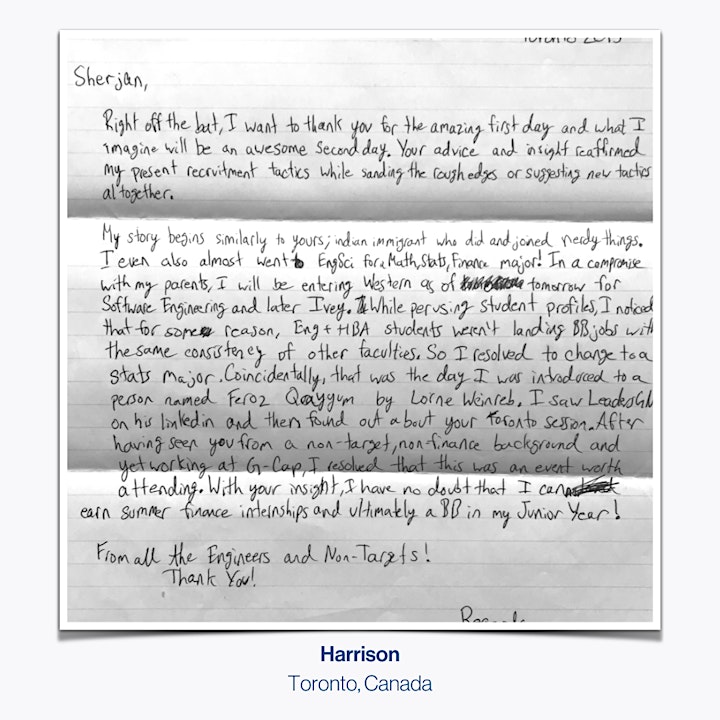 Toronto 2019
Sherjan,
Right off the bat, I want to thank you for the amazing first day and what I
imagine will be an awesome second day. Your advice and insight reaffirmed
my present recruitment tactics while sanding the rough edges or suggesting new tactics
altogether.
My story begins similarly to yours; indian immigrant who did and joined nerdy things.
I even also almost went to EngSci for a Math, Stats, Finance major! In a compromise
with my parents, I will be entering Western as of tomorrow for
Software Engineering and later Ivey. While perusing student profiles, I noticed
that for some reason, Eng + HBA students weren't landing BB jobs with
the same consistency of other faculties. So I resolved to change to a
Stats major. Coincidentally, that was the day I was introduced to a
person named Feroz Qayyum by Lorne Weinreb. I saw
on his linkedin and then found out about your Toronto session. After
having seen you from a non-target, non-finance background and
yet working at G-Cap, I resolved that this was an event worth
attending. With your insight, I have no doubt that I can
earn summer finance internships and ultimately a BB in my Junior Year!
From all the Engineers and Non-Targets!
Thank You!
Harrison
Toronto, Canada